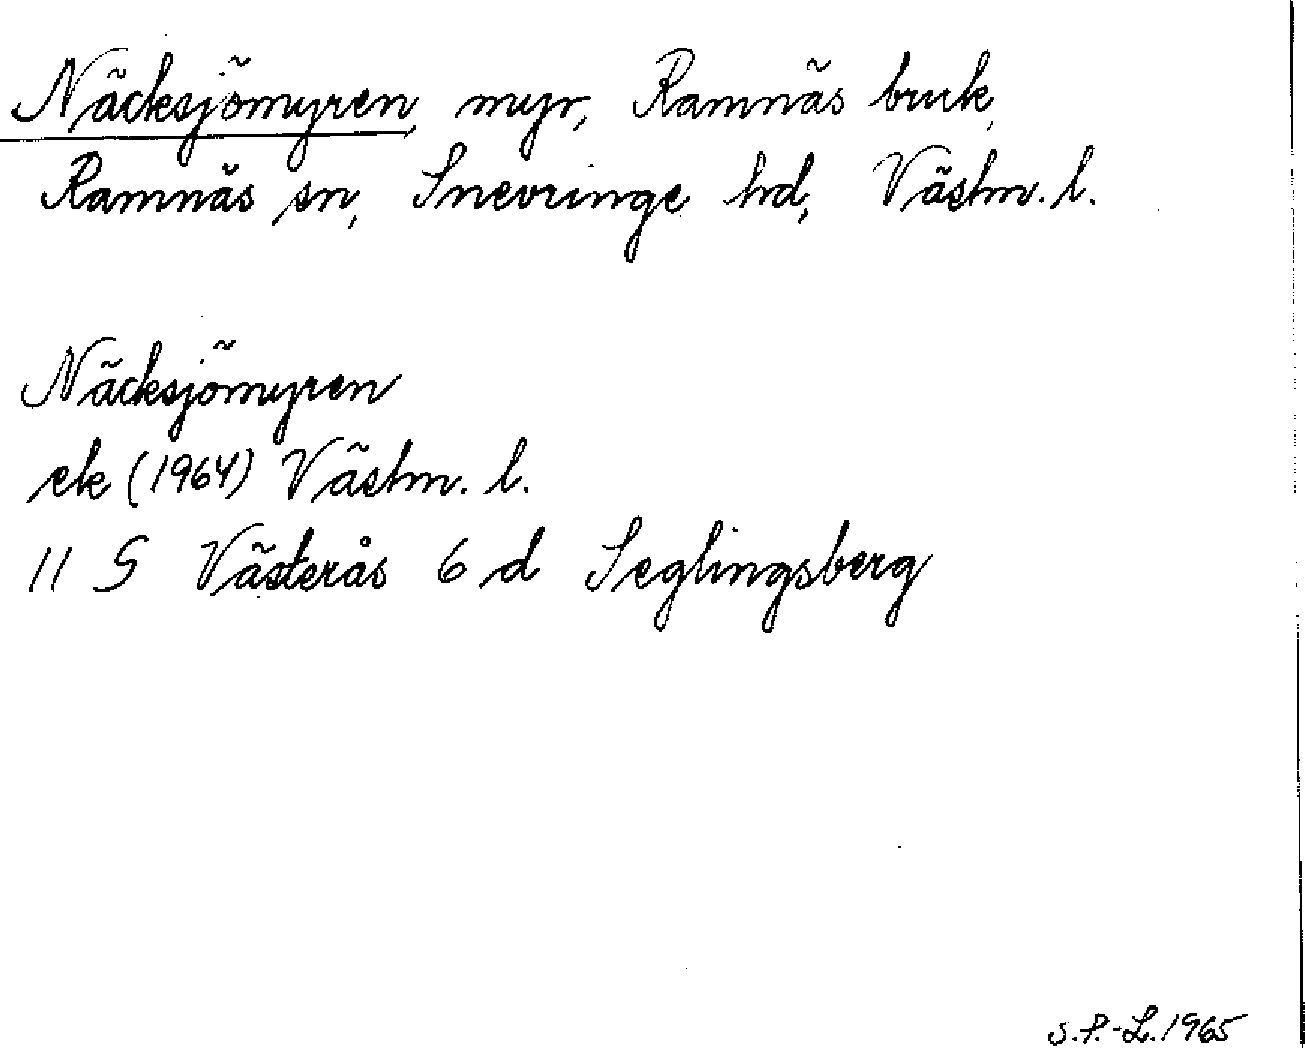 Näcksjömyren, myr, Ramnäs bruk,
Ramnäs sn, Snevringe hd, Västm. l.
Näcksjömyren
ek (1964) Västm. l.
11 G Västerås 6 d Seglingsberg
S.P.-L. 1965